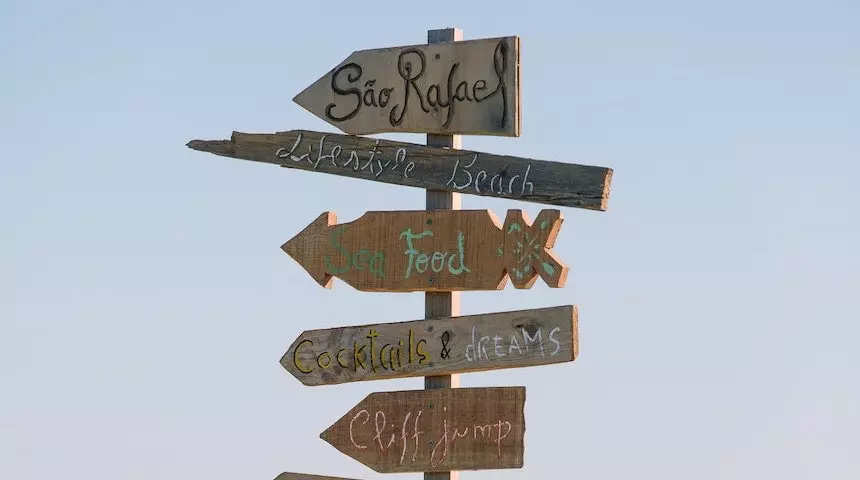 São Rafael
Lifestyle Beach
Sea Food
Cocktails & dREAMS
Cliff jump